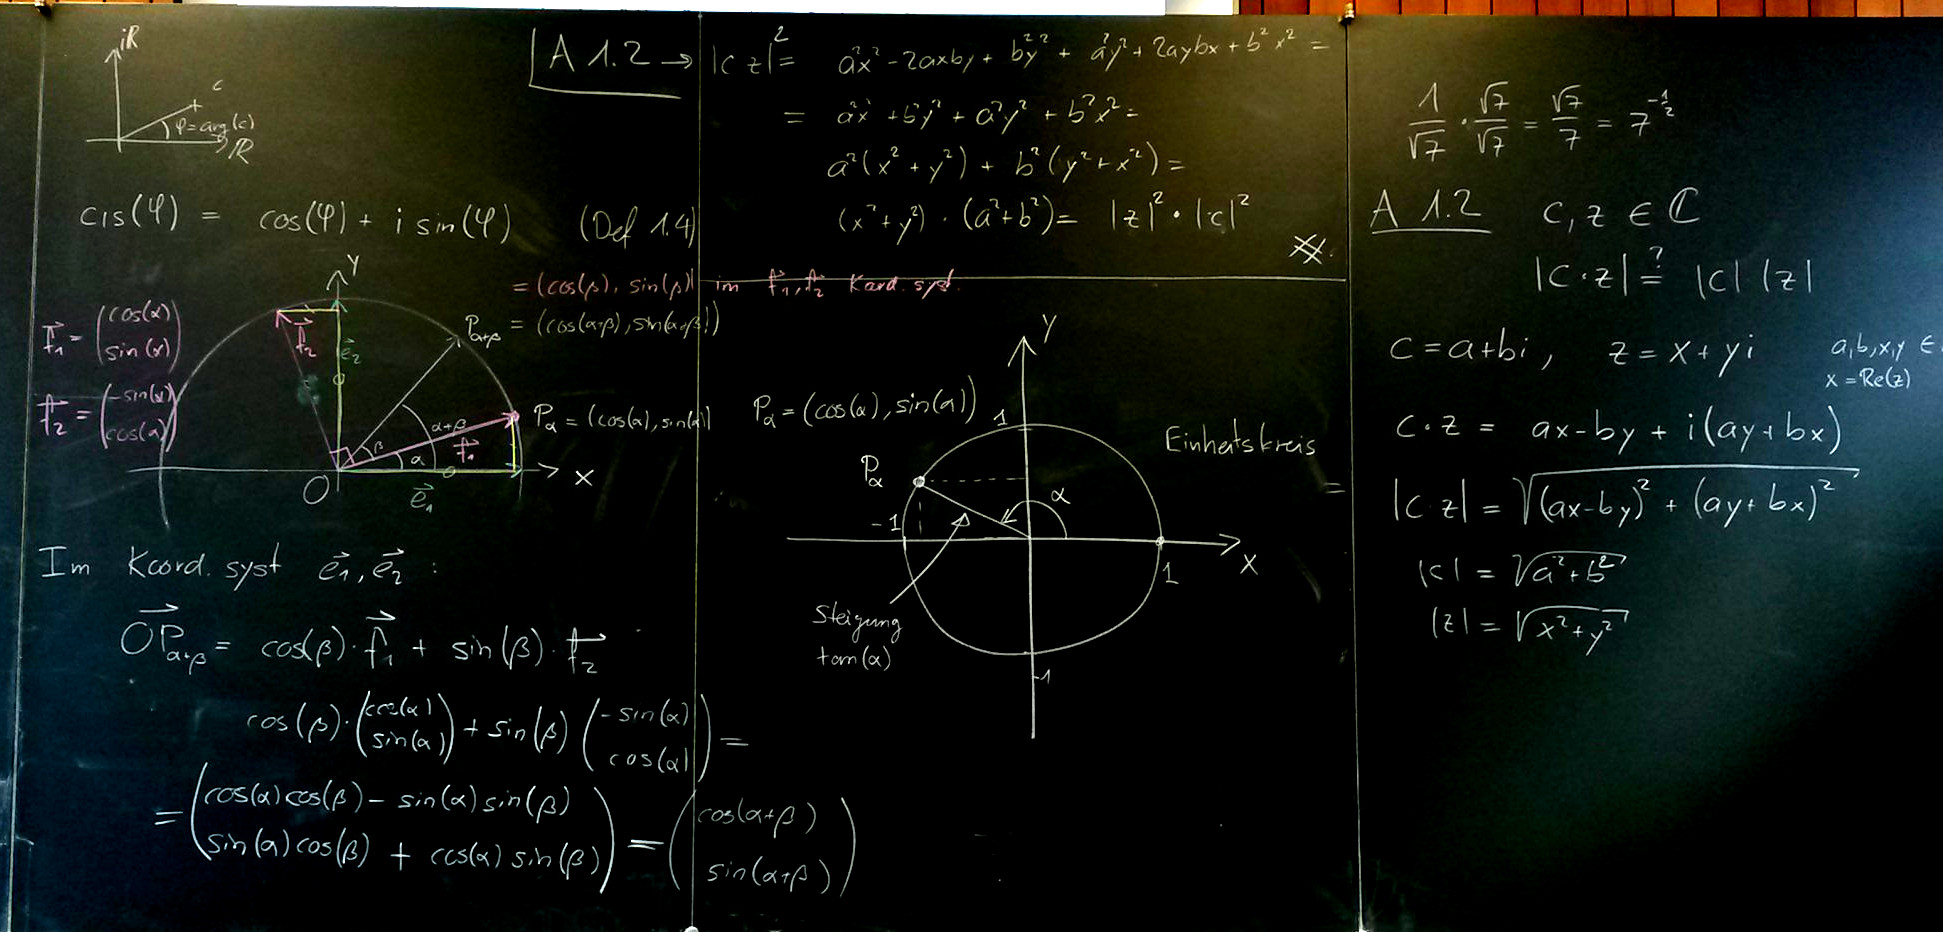 iR
c
φ=arg(c)
R
cis(φ) = cos(φ) + i sin(φ) (Def 1.4)
y
= (cos(β), sin(β)) im f⃗₁, f⃗₂ Koord. syst.
P_{α+β} = (cos(α+β), sin(α+β))
f⃗₁ = (cos(α) / sin(α))
f⃗₂ = (-sin(α) / cos(α))
f⃗₂
e⃗₂
Pα = (cos(α), sin(α))
α+β
β
f⃗₁
α
O
e⃗₁
x
Im Koord. syst e⃗₁, e⃗₂ :
OP⃗_{α+β} = cos(β)·f⃗₁ + sin(β)·f⃗₂
cos(β)·(cos(α) / sin(α)) + sin(β) (-sin(α) / cos(α)) =
= (cos(α)cos(β) - sin(α)sin(β) / sin(α)cos(β) + cos(α)sin(β)) = (cos(α+β) / sin(α+β))
A 1.2 → |c z|² = a²x² - 2axby + b²y² + a²y² + 2aybx + b²x² =
= a²x² + b²y² + a²y² + b²x² =
a²(x² + y²) + b²(y² + x²) =
(x² + y²) · (a² + b²) = |z|² · |c|²
Y
Pα = (cos(α), sin(α))
1
Einheitskreis
Pα
α
-1
1
X
Steigung
tan(α)
-1
1/√7 · √7/√7 = √7/7 = 7^{-1/2}
A 1.2 c, z ∈ ℂ
|c·z| ≟ |c| |z|
c = a+bi, z = x + yi
a,b,x,y ∈
x = Re(z)
c·z = ax-by + i(ay+bx)
=
|c z| = √((ax-by)² + (ay+bx)²)
|c| = √(a²+b²)
|z| = √(x²+y²)